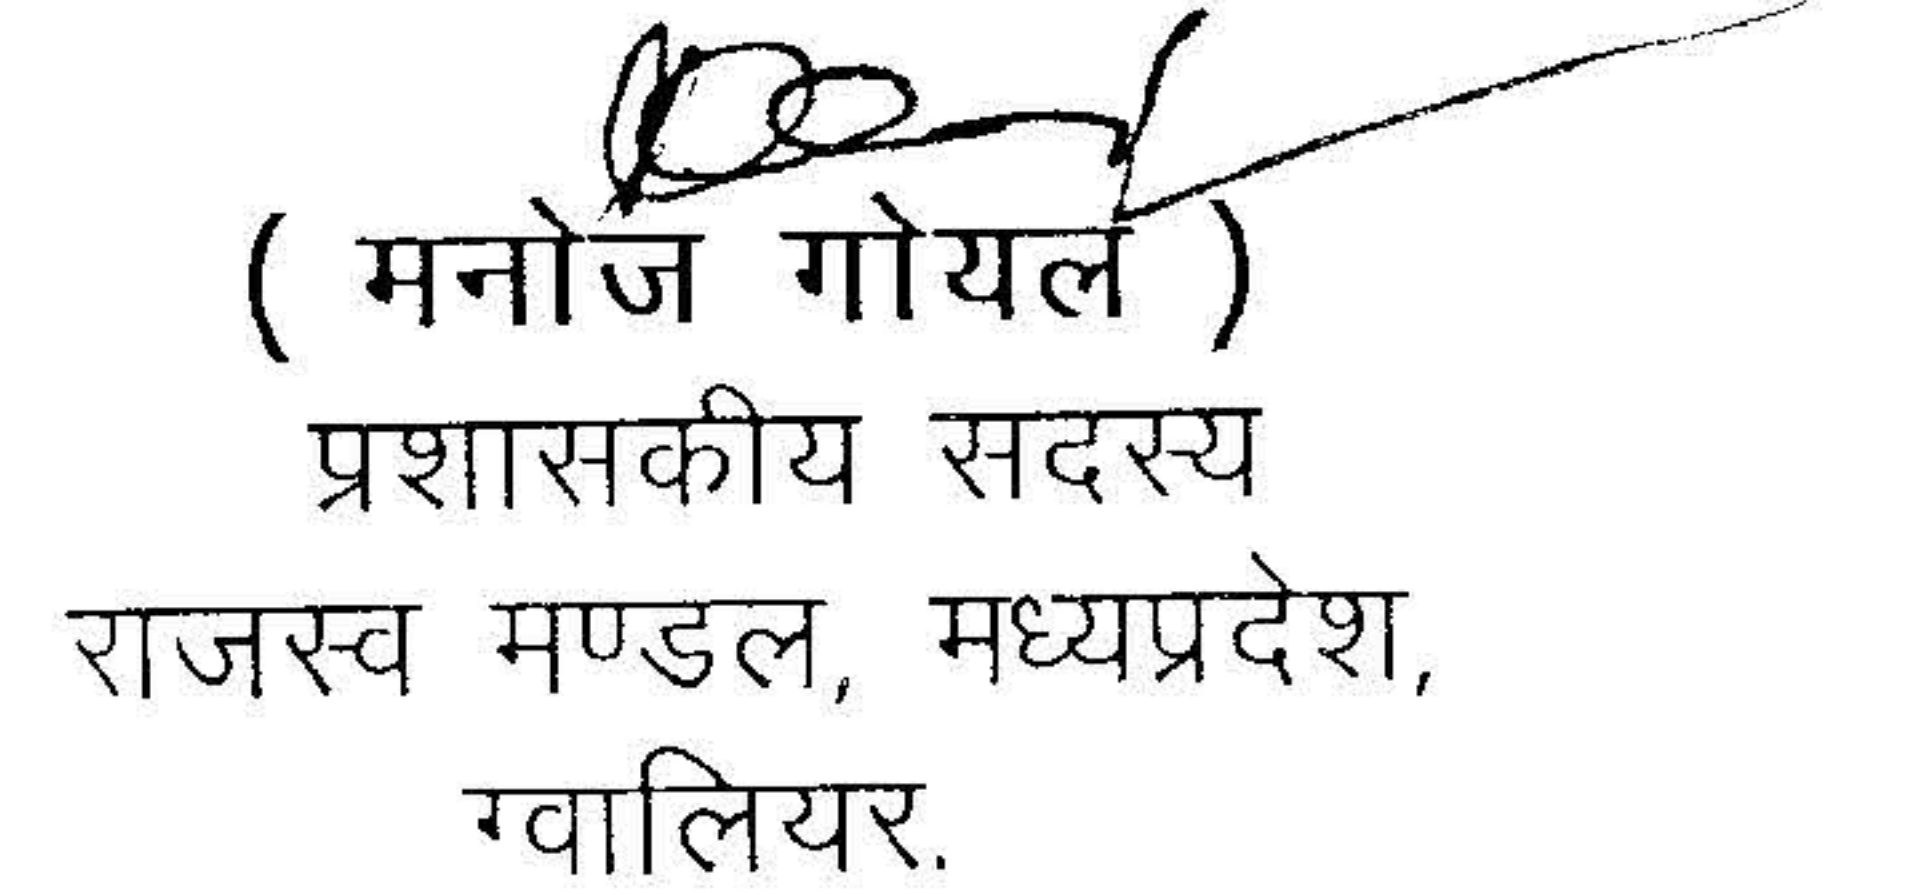 ( मनोज गोयल )
प्रशासकीय सदस्य
राजस्व मण्डल, मध्यप्रदेश,
ग्वालियर.